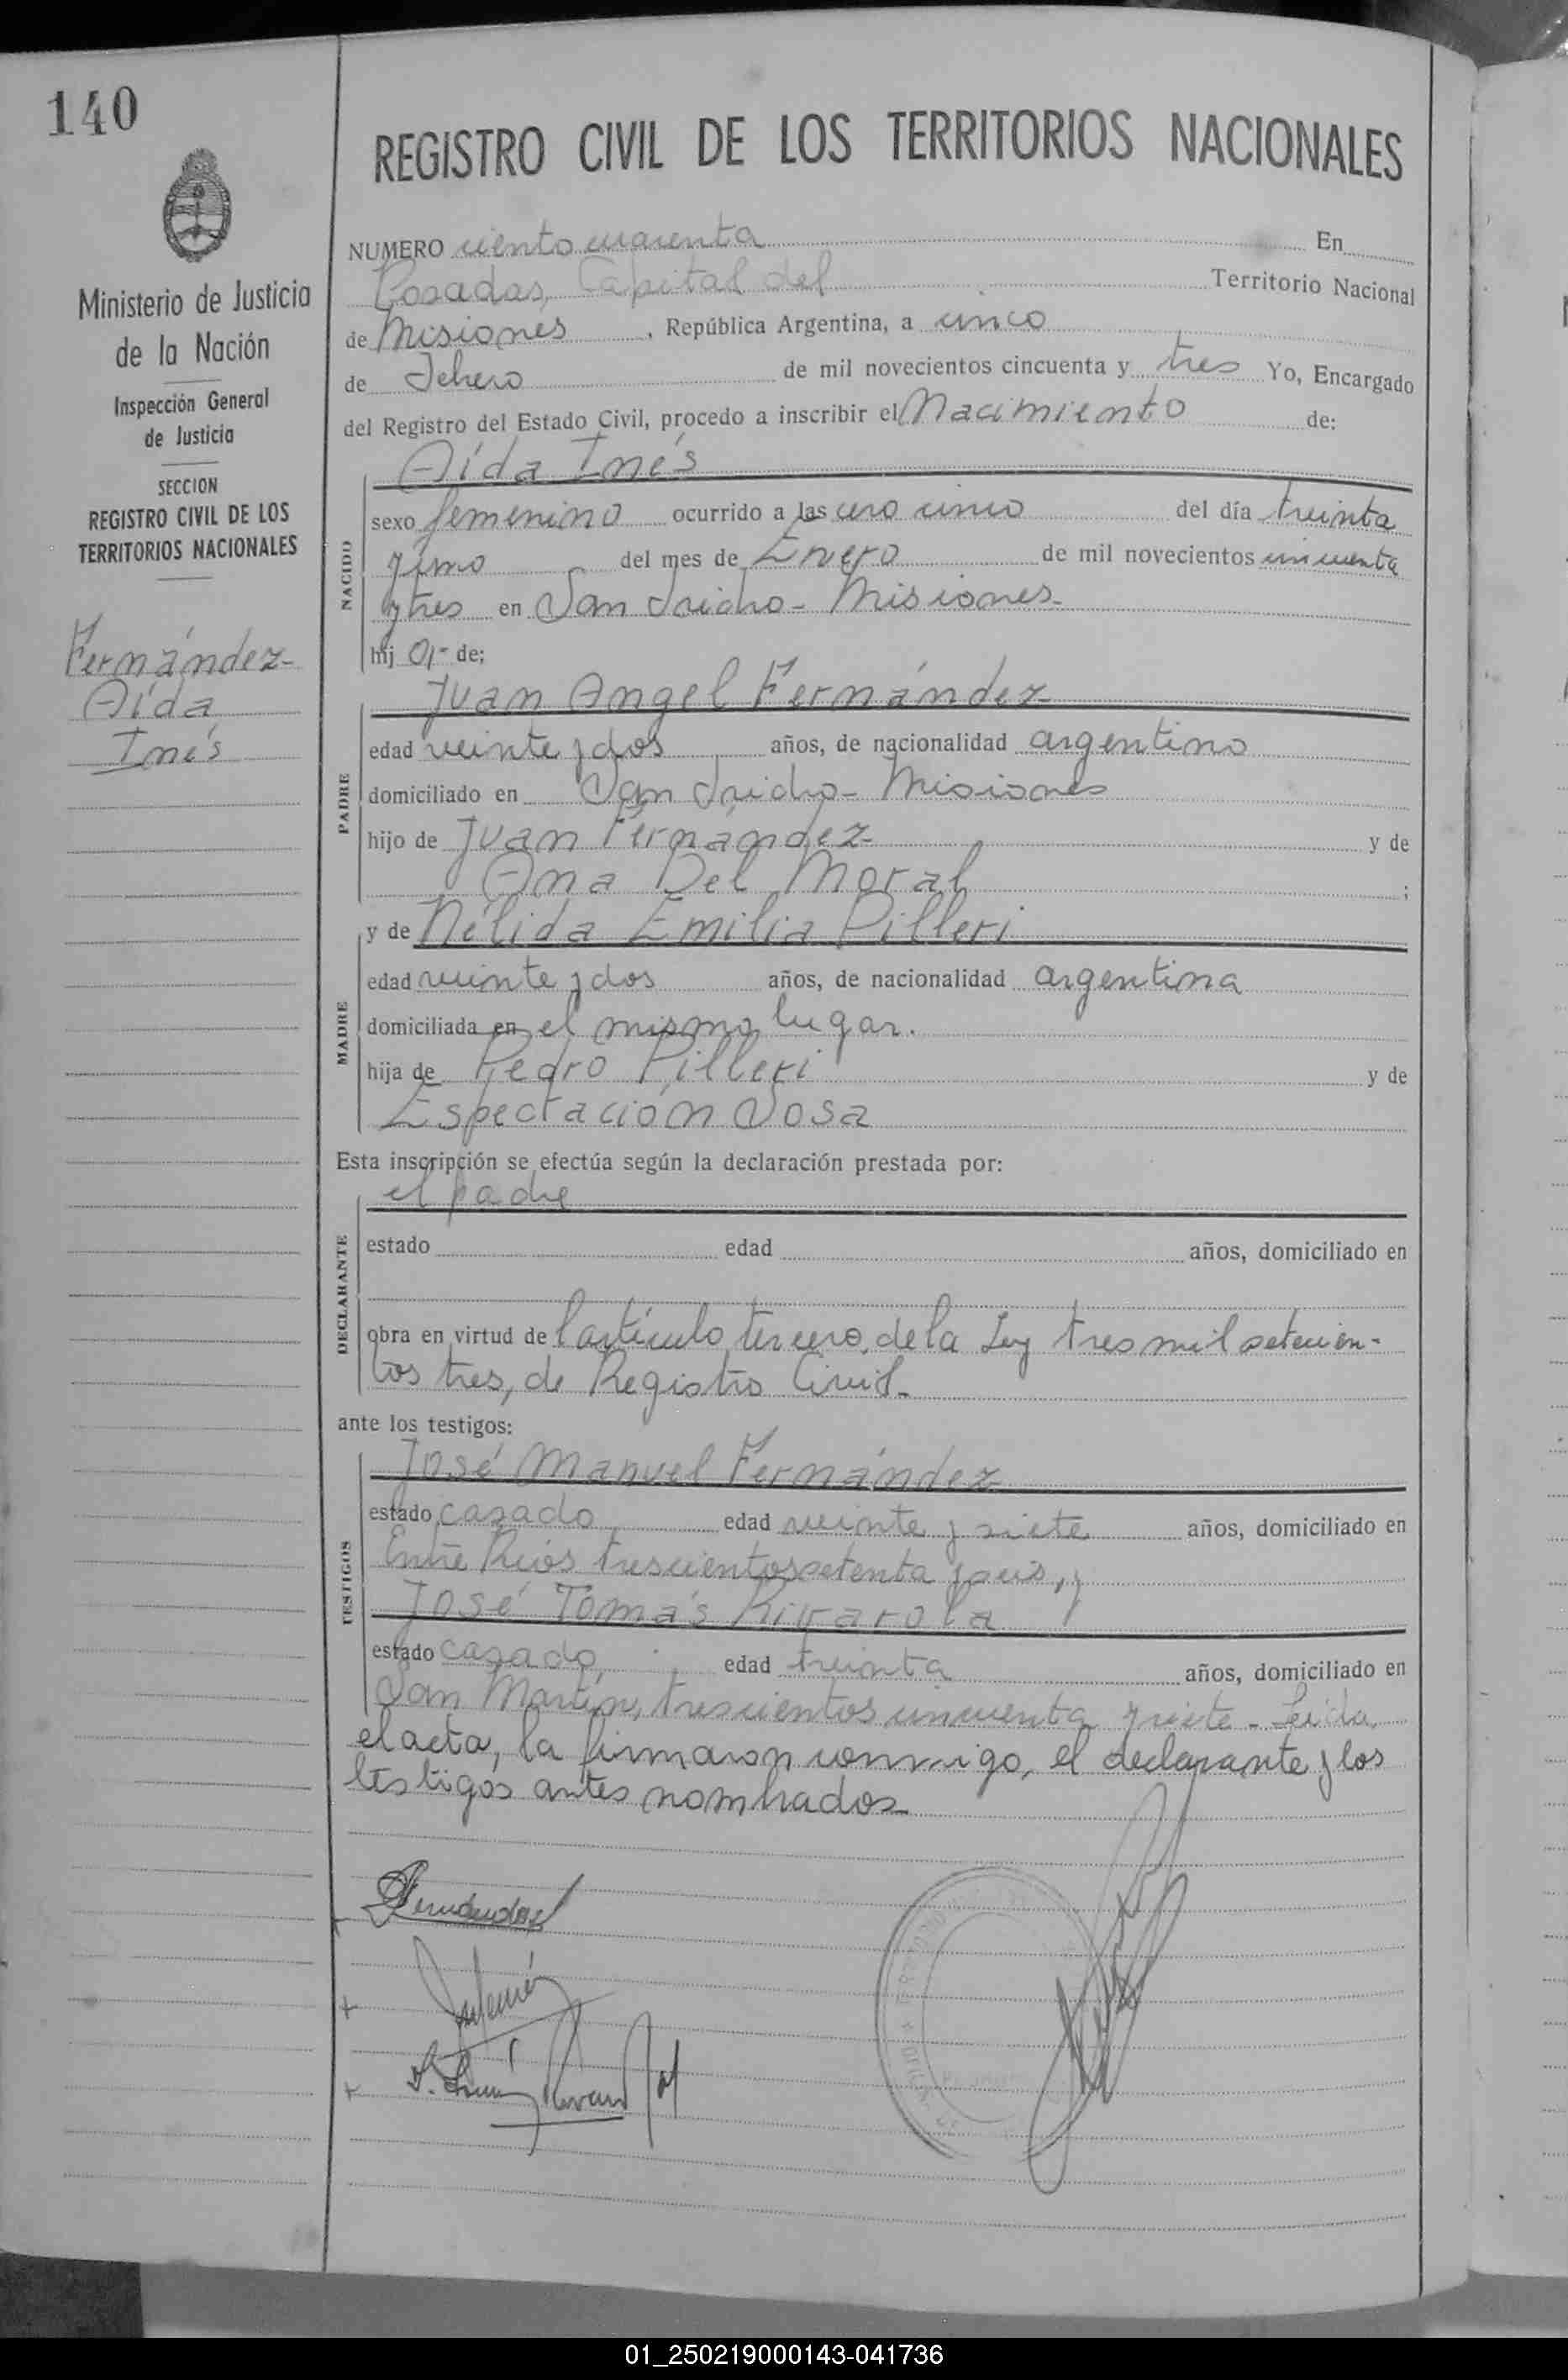 140
Ministerio de Justicia
de la Nación
Inspección General
de Justicia
SECCION
REGISTRO CIVIL DE LOS
TERRITORIOS NACIONALES
Fernández-
Aída
Inés
REGISTRO CIVIL DE LOS TERRITORIOS NACIONALES
NUMERO ciento cuarenta En
Posadas, Capital del Territorio Nacional
de Misiones, República Argentina, a cinco
de Febrero de mil novecientos cincuenta y tres Yo, Encargado
del Registro del Estado Civil, procedo a inscribir el Nacimiento de:
Aída Inés
NACIDO
sexo femenino ocurrido a las cero cinco del día treinta
del mes de Enero de mil novecientos cincuenta
y tres en San Isidro - Misiones-
hij a- de;
Juan Angel Fernández
PADRE
edad veinte y dos años, de nacionalidad argentino
domiciliado en San Isidro - Misiones
hijo de Juan Fernández y de
Ana Del Moral ;
y de Nélida Emilia Pilleri
MADRE
edad veinte y dos años, de nacionalidad argentina
domiciliada en el mismo lugar.
hija de Pedro Pilleri y de
Espectación Sosa
Esta inscripción se efectúa según la declaración prestada por:
el padre
DECLARANTE
estado edad años, domiciliado en
obra en virtud de l artículo tercero, de la Ley tres mil setecien-
tos tres, de Registro Civil-
ante los testigos:
José Manuel Fernández
TESTIGOS
estado casado edad veinte y siete años, domiciliado en
Entre Rios trescientos setenta y seis, y
José Tomás Rivarola
estado casado, edad treinta años, domiciliado en
San Martín, trescientos cincuenta y siete - Leída
el acta, la firmaron conmigo, el declarante y los
testigos antes nombrados-
01_250219000143-041736